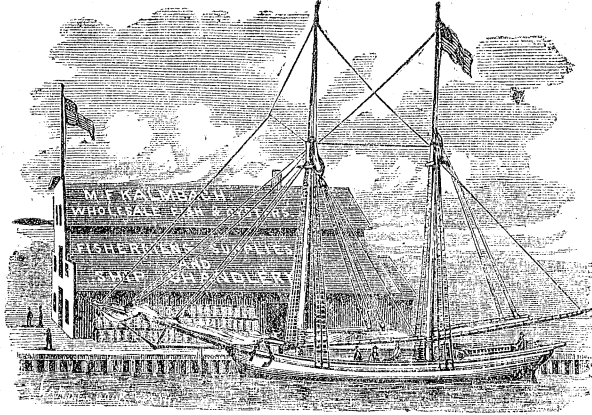 M. F. KALMBACH.
WHOLESALE FISH & OYSTERS
FISHERMENS SUPPLIES
AND
SHIP CHANDLERY